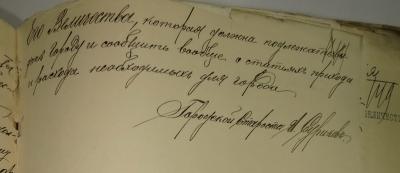 Его Величества, которая должна подлежать
для городу и сообщить вообще о статьях прихода
и расхода необходимых для города
Городской Староста А.